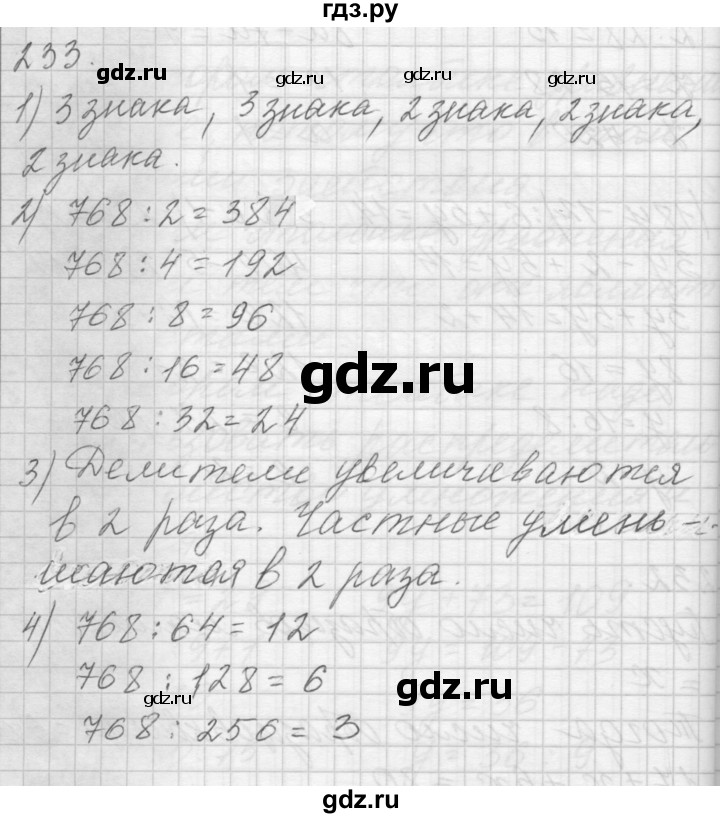 гдз.ру
233.
gdz.ru
gdz.ru
gdz.ru
1) 3 знака, 3 знака, 2 знака, 2 знака,
2 знака.
2) 768 : 2 = 384
768 : 4 = 192
768 : 8 = 96
768 : 16 = 48
gdz.ru
768 : 32 = 24
3) Делители увеличиваются
в 2 раза. Частные умень-
шаются в 2 раза.
4) 768 : 64 = 12
768 : 128 = 6
gdz.ru
gdz.ru
768 : 256 = 3
gdz.ru